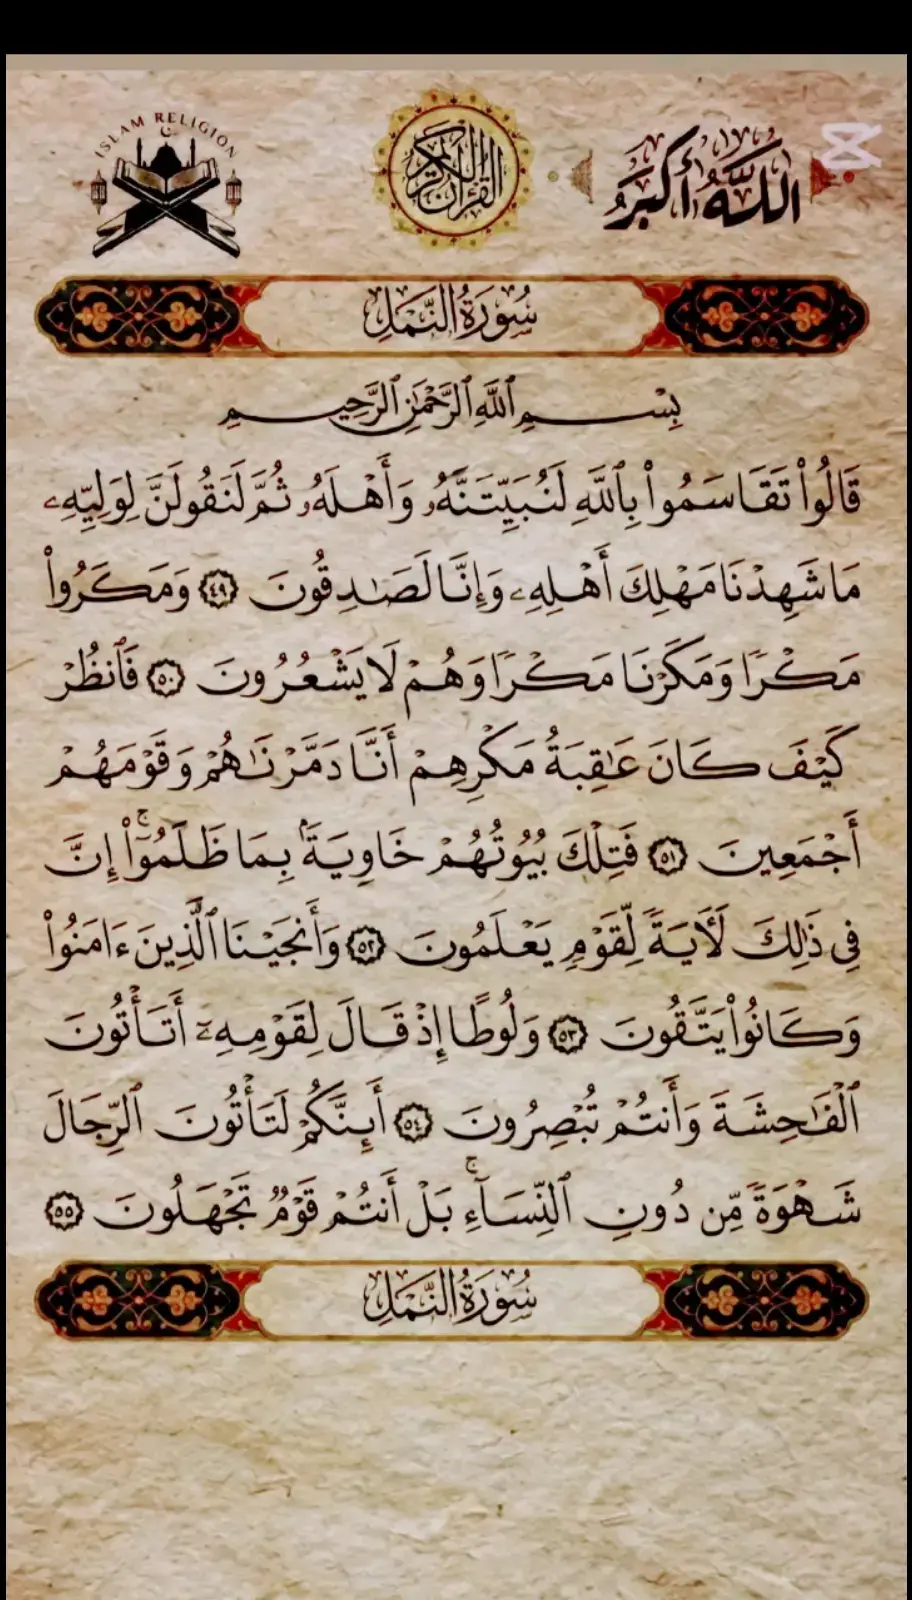 ISLAM RELIGION
القرآن الكريم
الله أكبر
سُورَةُ النَّمْلِ
بِسْمِ ٱللَّهِ ٱلرَّحْمَٰنِ ٱلرَّحِيمِ
قَالُوا۟ تَقَاسَمُوا۟ بِٱللَّهِ لَنُبَيِّتَنَّهُۥ وَأَهْلَهُۥ ثُمَّ لَنَقُولَنَّ لِوَلِيِّهِۦ
مَا شَهِدْنَا مَهْلِكَ أَهْلِهِۦ وَإِنَّا لَصَٰدِقُونَ ٤٩ وَمَكَرُوا۟
مَكْرًا وَمَكَرْنَا مَكْرًا وَهُمْ لَا يَشْعُرُونَ ٥٠ فَٱنظُرْ
كَيْفَ كَانَ عَٰقِبَةُ مَكْرِهِمْ أَنَّا دَمَّرْنَٰهُمْ وَقَوْمَهُمْ
أَجْمَعِينَ ٥١ فَتِلْكَ بُيُوتُهُمْ خَاوِيَةًۢ بِمَا ظَلَمُوٓا۟ ۚ إِنَّ
فِى ذَٰلِكَ لَـَٔايَةً لِّقَوْمٍ يَعْلَمُونَ ٥٢ وَأَنجَيْنَا ٱلَّذِينَ ءَامَنُوا۟
وَكَانُوا۟ يَتَّقُونَ ٥٣ وَلُوطًا إِذْ قَالَ لِقَوْمِهِۦٓ أَتَأْتُونَ
ٱلْفَٰحِشَةَ وَأَنتُمْ تُبْصِرُونَ ٥٤ أَئِنَّكُمْ لَتَأْتُونَ ٱلرِّجَالَ
شَهْوَةً مِّن دُونِ ٱلنِّسَآءِ ۚ بَلْ أَنتُمْ قَوْمٌ تَجْهَلُونَ ٥٥
سُورَةُ النَّمْلِ